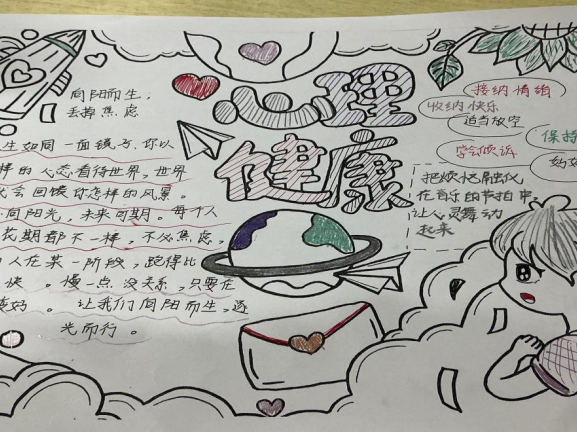 心理
健康
向阳而生，
丢掉焦虑
生如同一面镜子，你以
样的心态看待世界，世界
会回馈你怎样的风景。
向阳光，未来可期。每个人
花期都不一样，不必焦虑，
人在某一阶段，跑得比
快。慢一点没关系，只要在
。让我们向阳而生，逐
光而行。
接纳情绪
收纳快乐
适当放空
学会倾诉
保持
把烦恼融化
在音乐的节拍中
让心灵舞动
起来